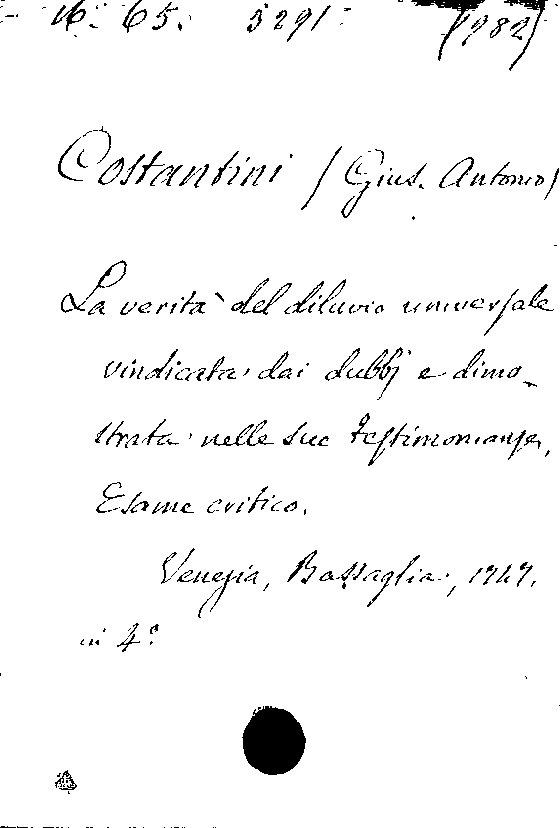 16. 65. 5291. (982)
Costantini (Gius. Antonio)
La verità del diluvio universale
vindicata dai dubbj e dimo-
strata nelle sue testimonianze,
Esame critico.
Venezia, Bassaglia, 1747.
in 4º